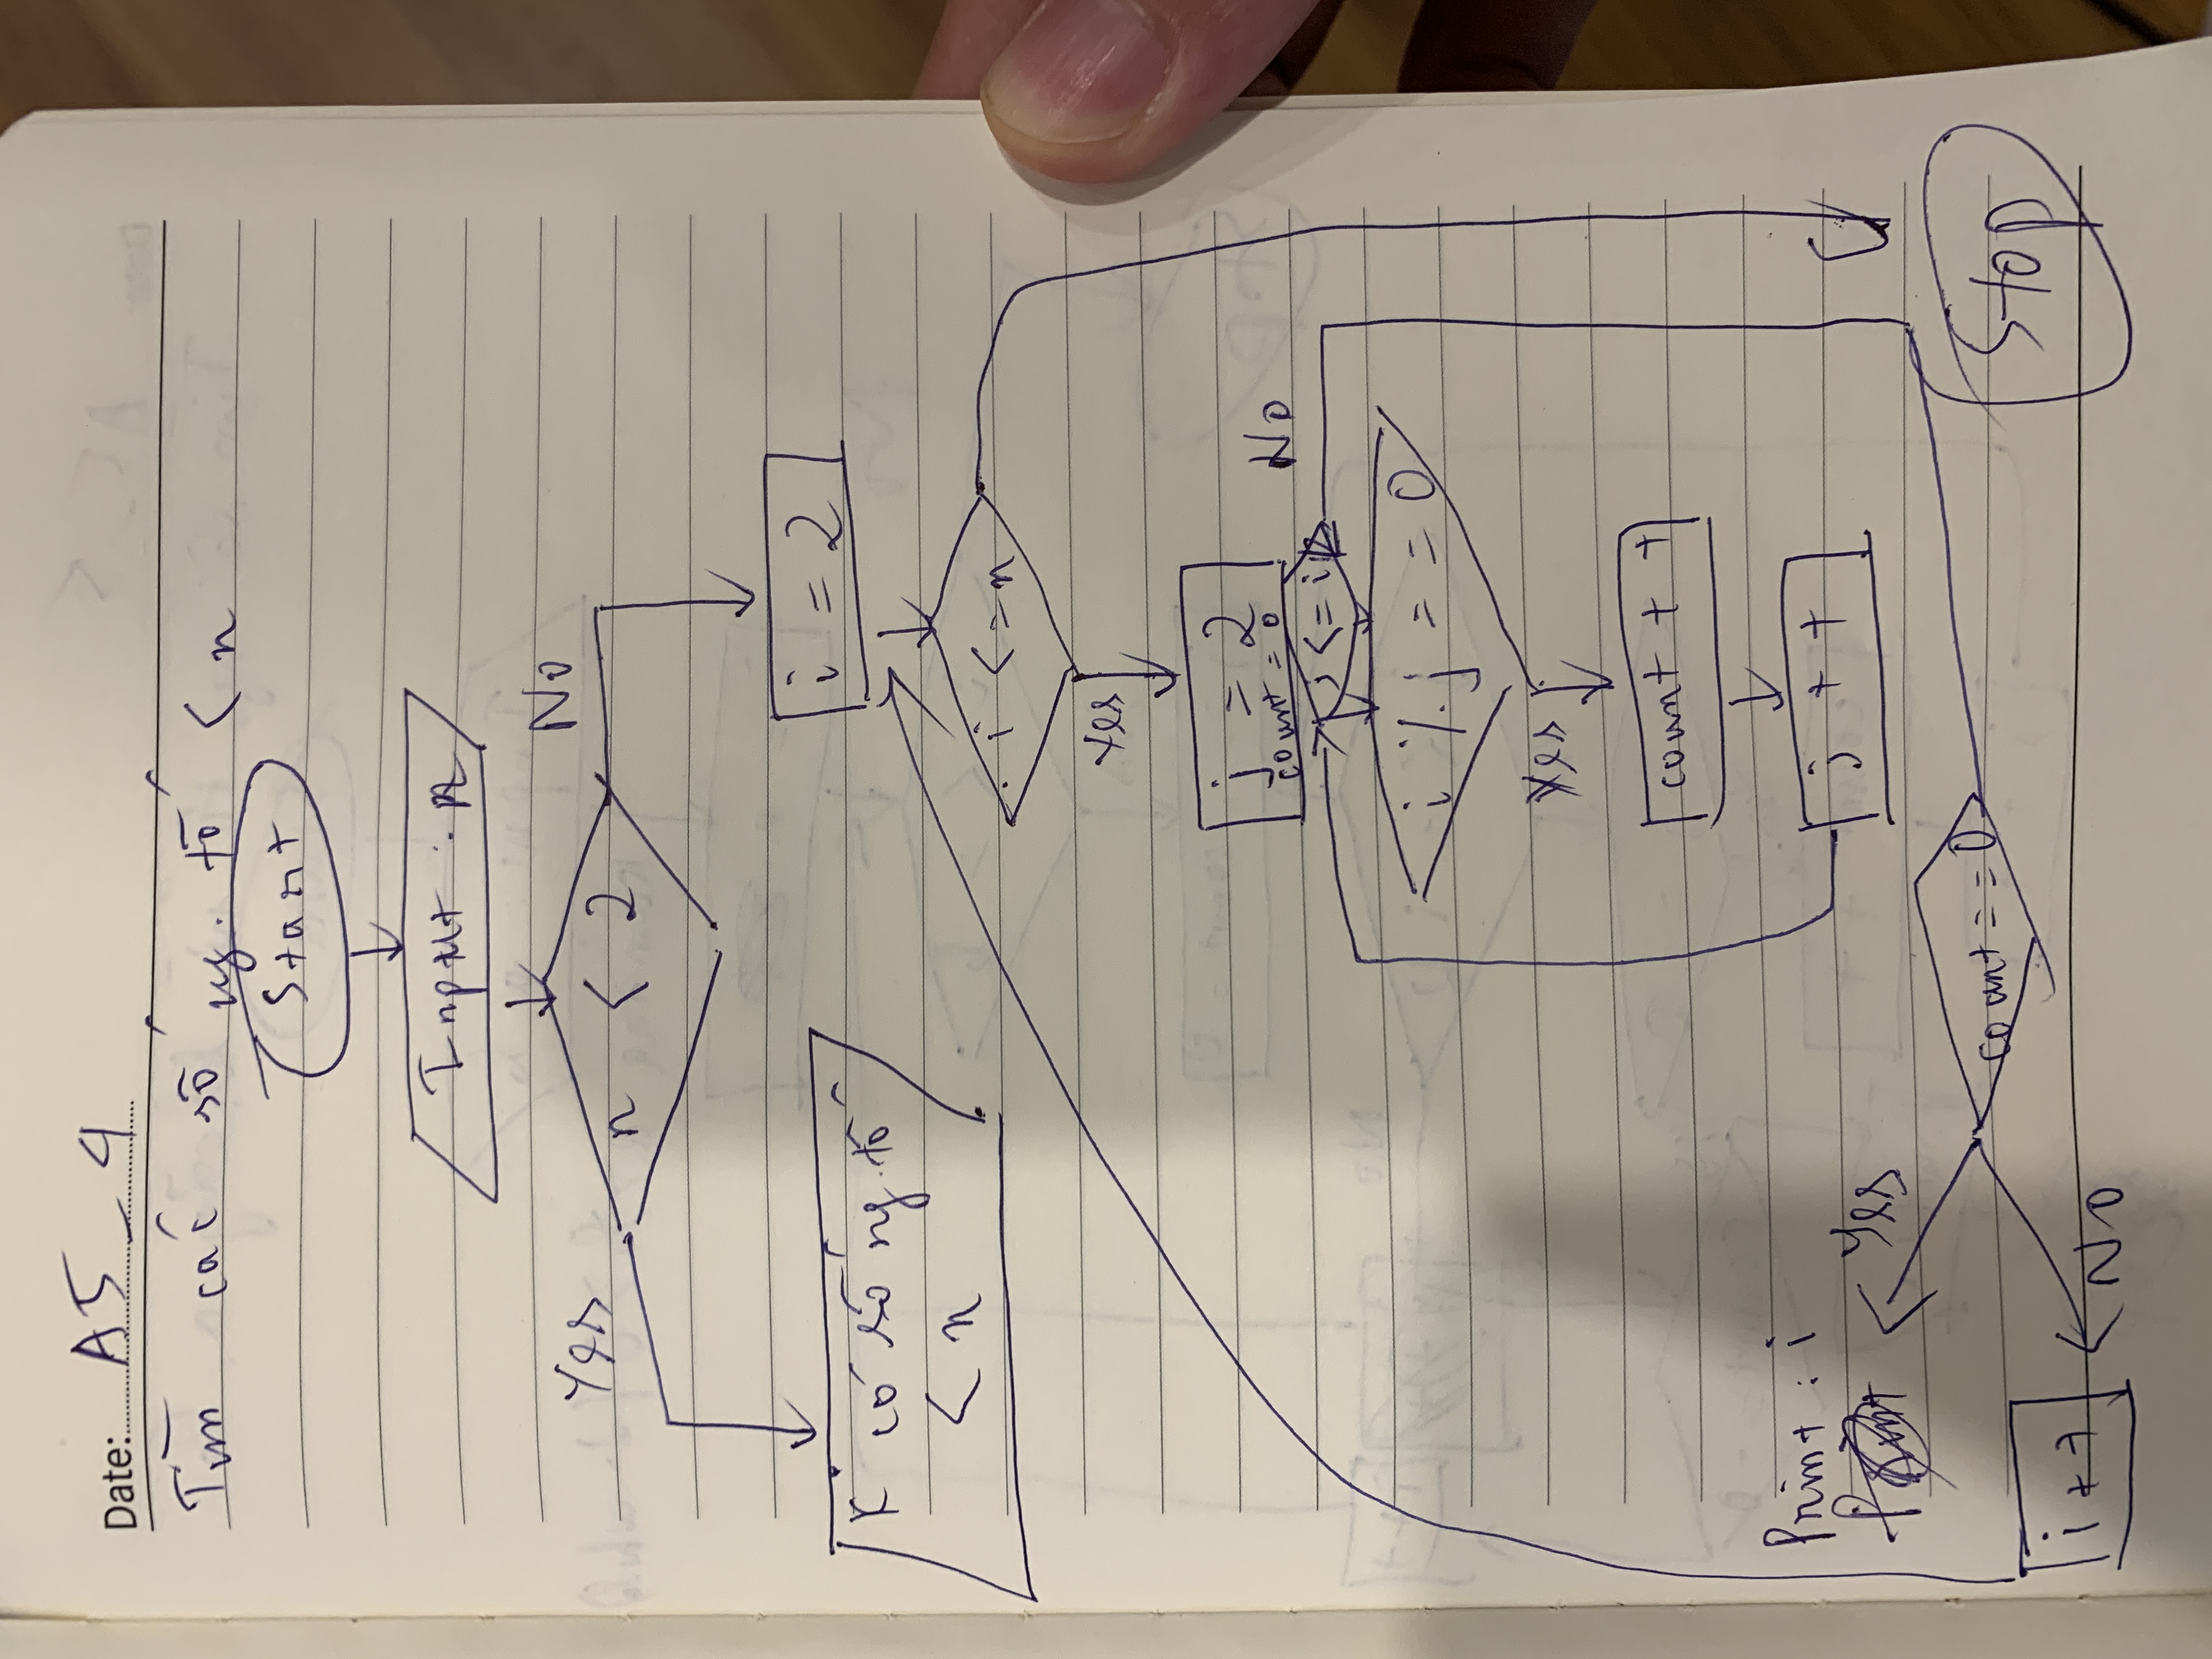 Date: A5_4
Tìm các số ng. tố < n
Start
Input : n
Yes
No
n < 2
i = 2
K có số ng. tố
< n
i <= n
Yes
j = 2
count = 0
No
j <= i
i % j = = 0
Yes
count + +
j + +
Print : i
Yes
count = = 0
Stop
i ++
No